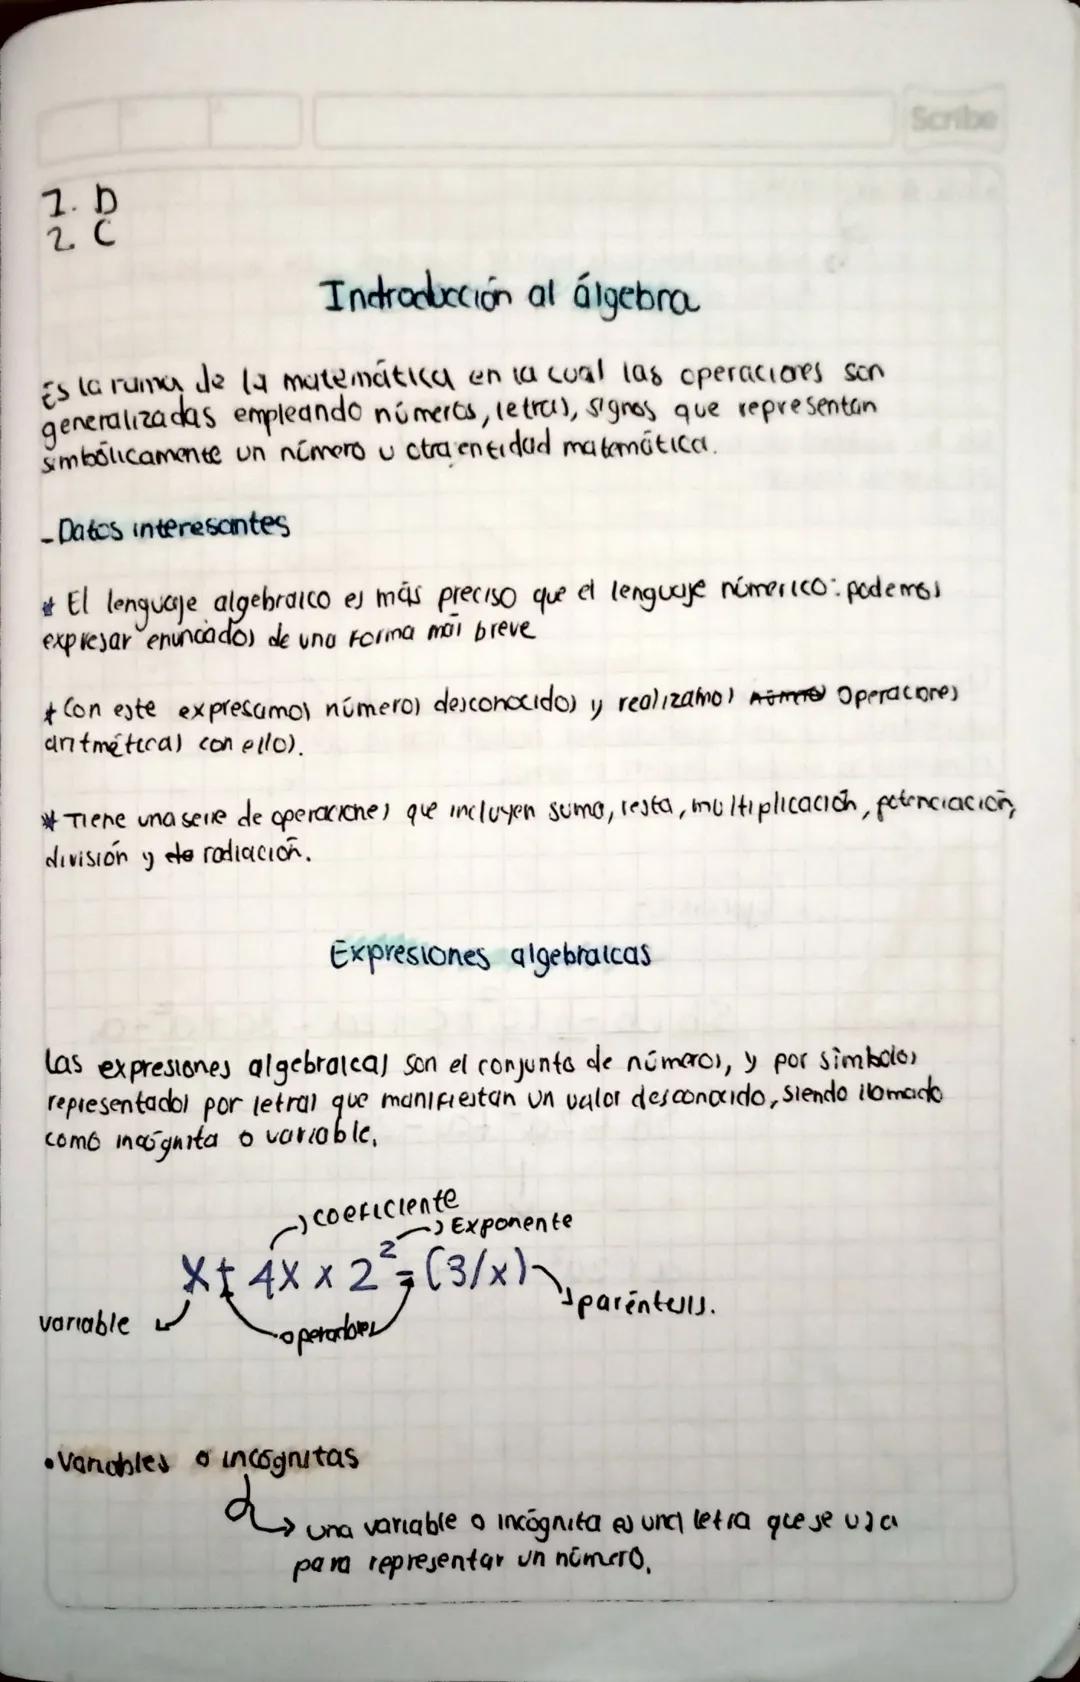 Scribe
1. D
2. C
Indroducción al álgebra
Es la rama de la matemática en la cual las operaciones son
generalizadas empleando números, letras, signos que representan
simbólicamente un número u otra entidad matemática.
- Datos interesantes
* El lenguaje algebraico es más preciso que el lenguaje númerico: podemos
expresar enunciados de una forma más breve
* Con este expresamos números desconocidos y realizamos operaciones
aritméticas con ellos.
* Tiene una serie de operaciones que incluyen suma, resta, multiplicación, potenciación,
división y radiación.
Expresiones algebraicas
Las expresiones algebraicas son el conjunto de números, y por símbolos
representados por letras que manifiestan un valor desconocido, siendo llamado
como incógnita o variable.
coeficiente
Exponente
X + 4X x 2² = (3/x)
paréntesis.
variable
operadores
• Variables o incógnitas
una variable o incógnita es una letra que se usa
para representar un número.